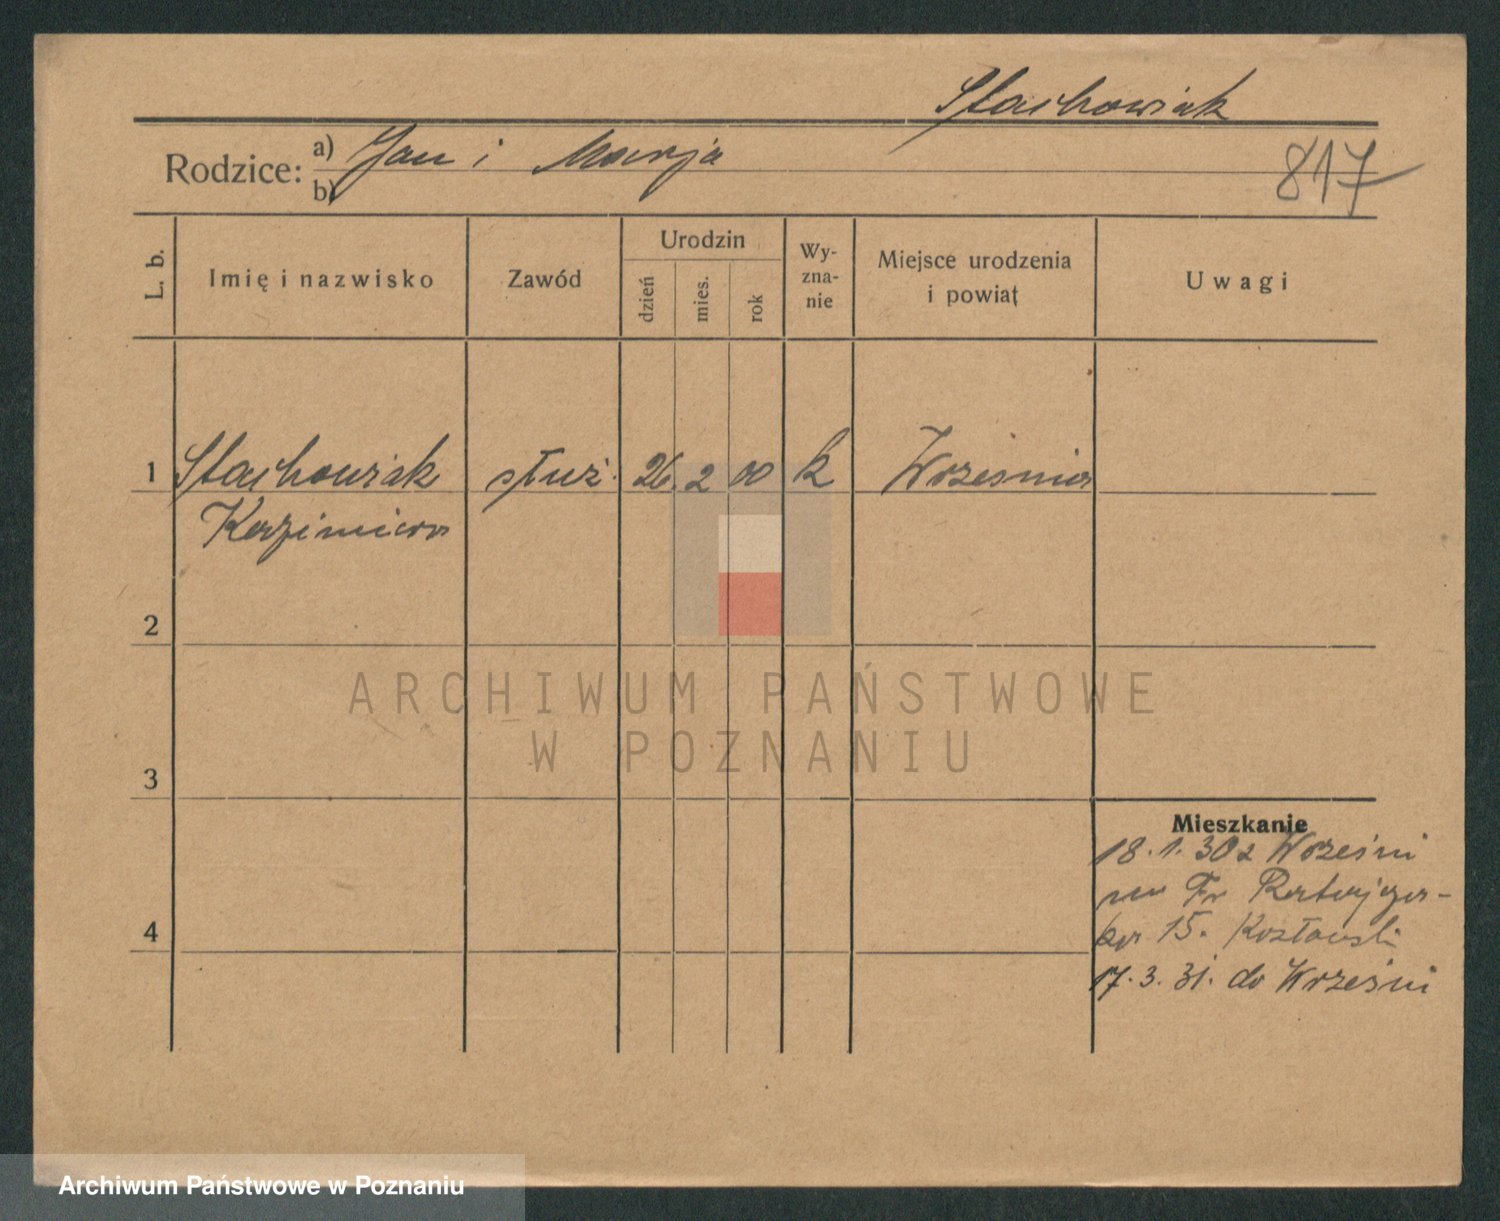 Stachowiak
Rodzice: a) Jan i Marja
b)
817
L. b.
Imię i nazwisko
Zawód
Urodzin
dzień
mies.
rok
Wy-
zna-
nie
Miejsce urodzenia
i powiat
Uwagi
1 Stachowiak służ. 26 2 00 k Września
Kazimiera
2
3
4
Mieszkanie
18.1.30 z Wrześni
na Fr Ratajcza-
ka 15. Kozłowski
17.3.31. do Wrześni
ARCHIWUM PAŃSTWOWE
W POZNANIU
Archiwum Państwowe w Poznaniu